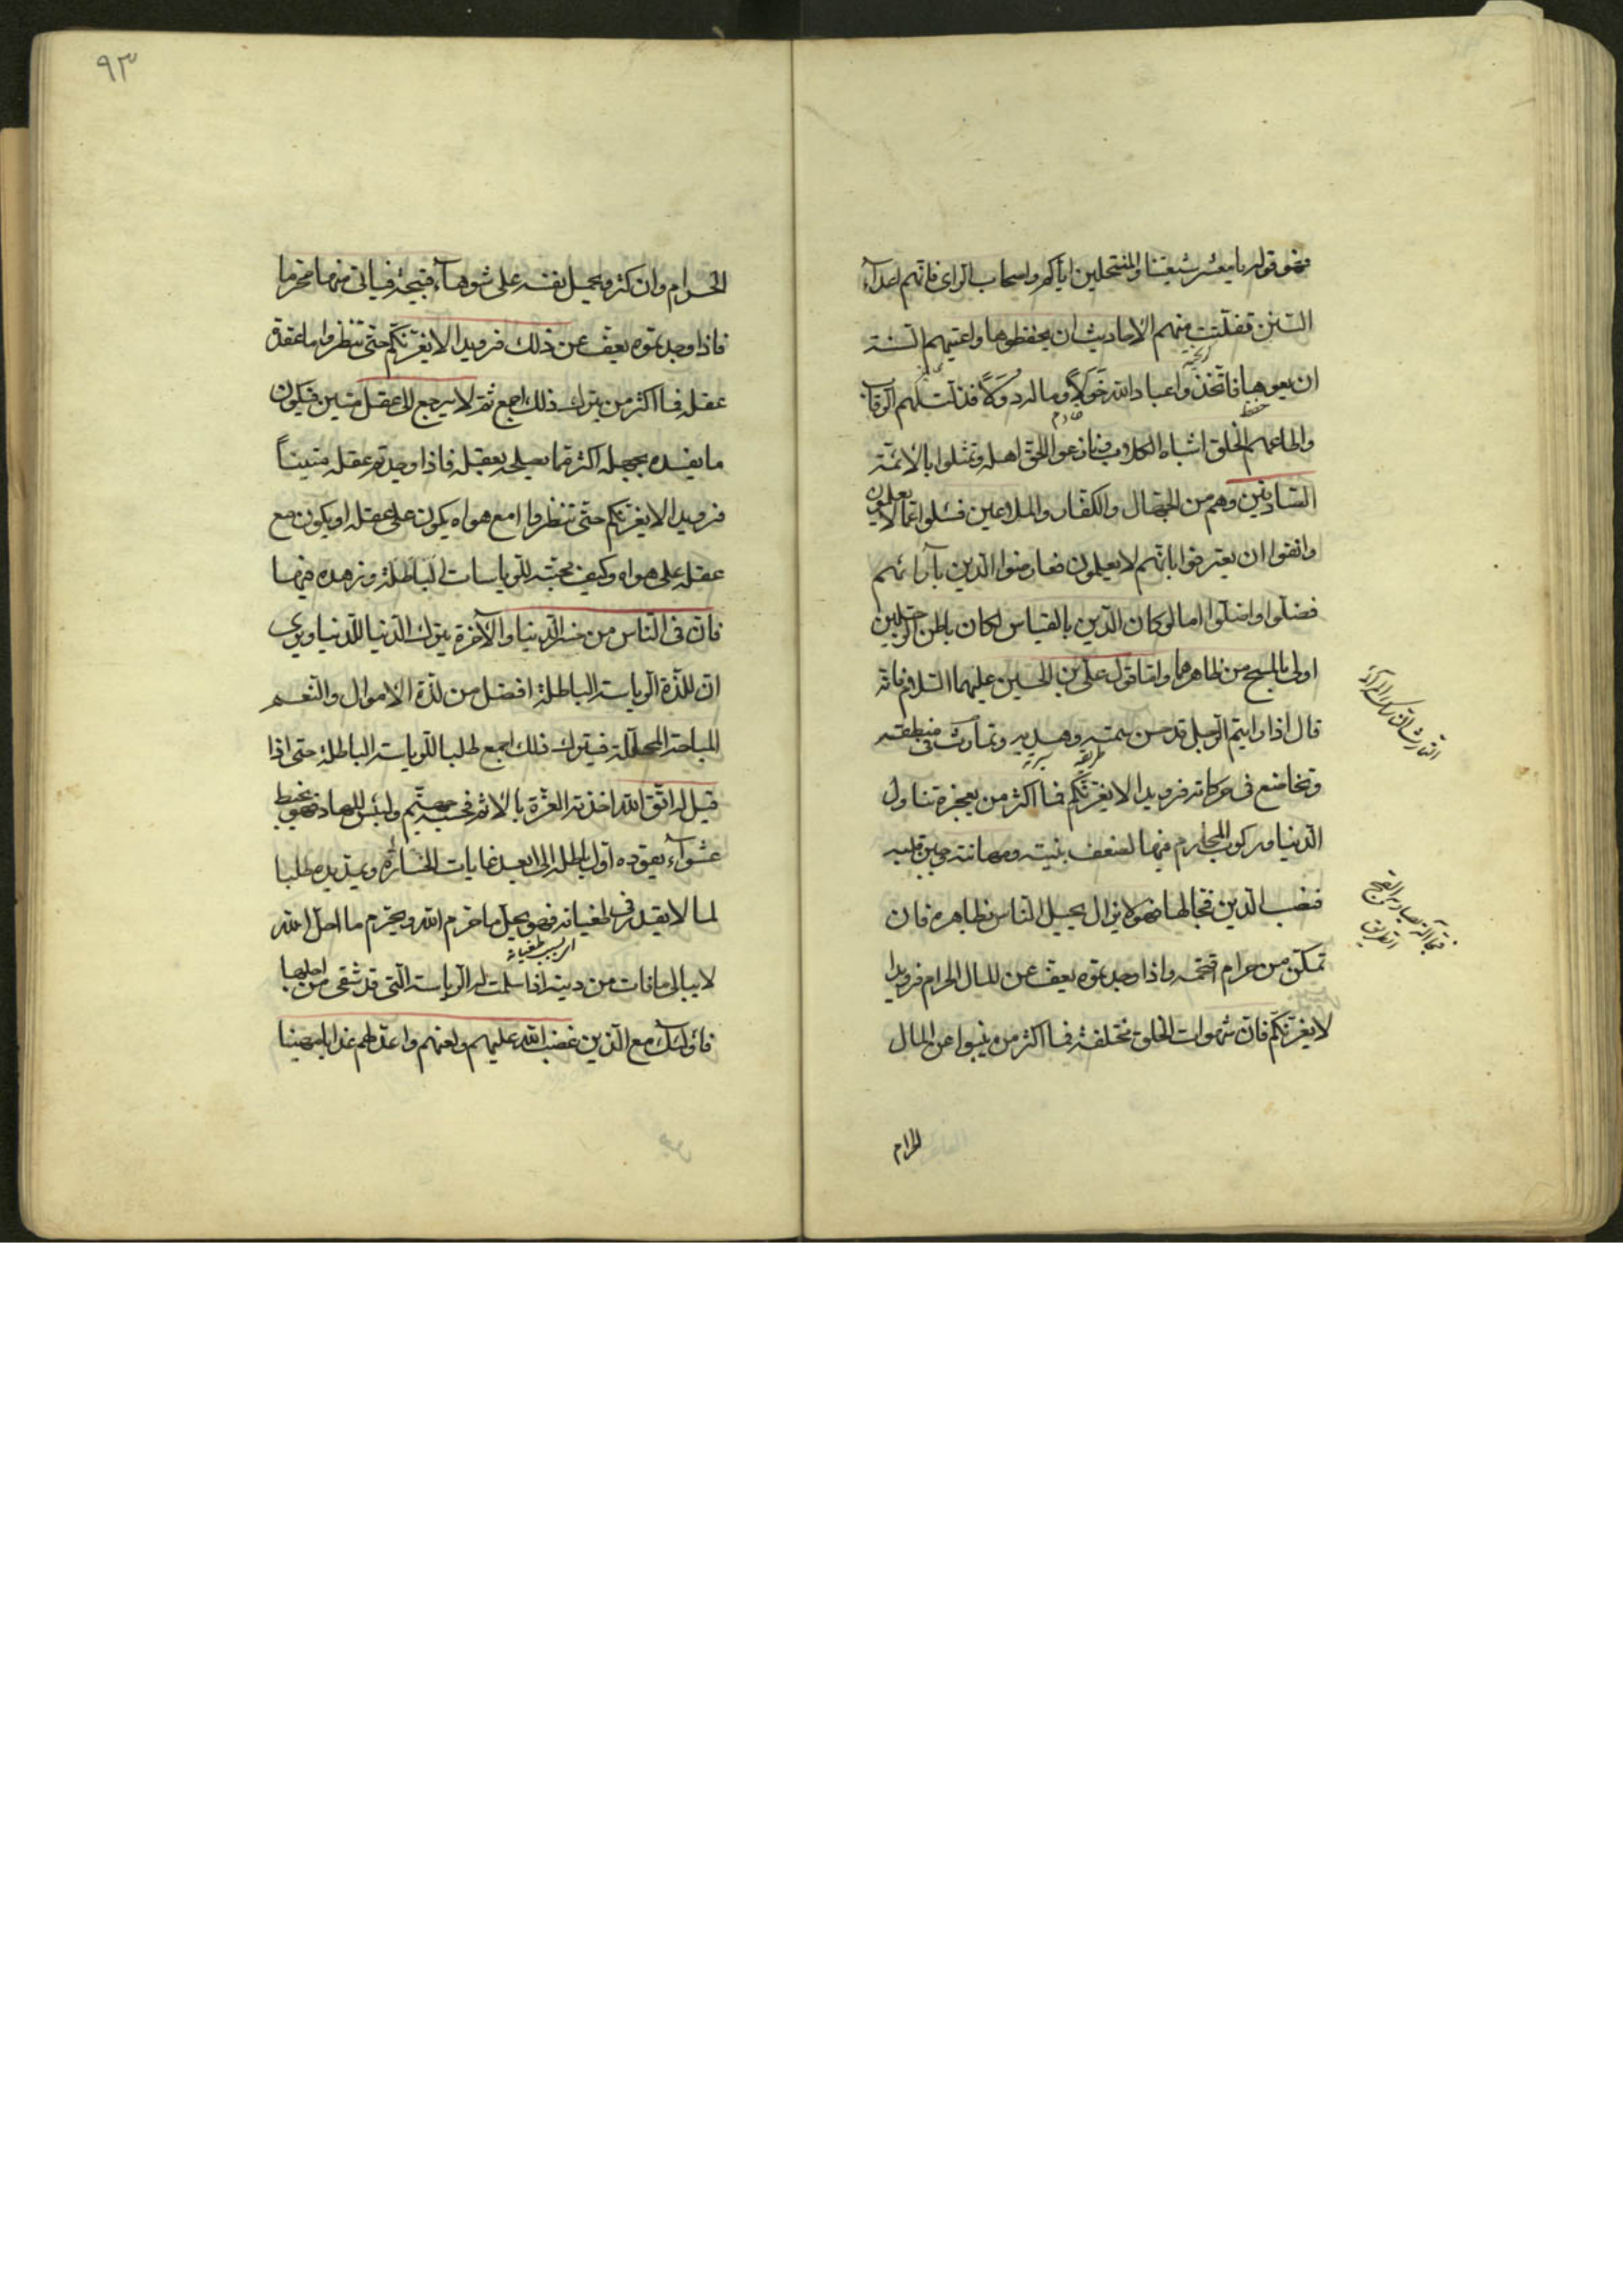 فهو قوله يا معشر شيعتنا والمنتحلين اياكم واصحاب الراى فانهم اعدآء
السنن تفلتت منهم الاحاديث ان يحفظوها واعيتهم السنة
ان يعوها فاتخذوا عباد الله خولاً وماله دولاً فذلت لهم الرقاب
واطاعهم الخلق اشباه الكلاب ونازعوا الحق اهله وتمثلوا بالائمة
الصادقين وهم من الجهال والكفار والملاعين فسئلوا عما لا يعلمون
وانفوا ان يعترفوا بانهم لا يعلمون فعارضوا الدين بآرائهم
فضلوا واضلوا اما لو كان الدين بالقياس لكان باطن الرجلين
اولى بالمسح من ظاهرهما واما قول على بن الحسين عليهما السلام فانه
قال اذا رايتم الرجل قد حسن سمته وهديه وتماوت فى منطقه
وتخاضع فى حركاته فرويدا لا يغرنكم فما اكثر من يعجزه تناول
الدنيا وركوب المحارم منها لضعف بنيته ومهانته وجبن قلبه
فنصب الدين فخا لها فهو لا يزال يحيل الناس بظاهره فان
تمكن من حرام اقتحمه واذا وجدتموه يعف عن المال الحرام فرويدا
لا يغرنكم فان شهوات الخلق مختلفة فما اكثر من ينبوا عن المال
الحرام
٩٣
الحرام وان كثر ويحمل نفسه على شوهآء قبيحة فياتى منها محرما
فاذا وجدتموه يعف عن ذلك فرويدا لا يغرنكم حتى تنظروا ما عقدة
عقله فما اكثر من يترك ذلك اجمع ثم لا يرجع الى عقل متين فيكون
ما يفسده بجهله اكثر مما يصلحه بعقله فاذا وجدتم عقله متيناً
فرويدا لا يغرنكم حتى تنظروا امع هواه يكون على عقله او يكون مع
عقله على هواه وكيف محبته للرياسات الباطلة وزهده فيها
فان فى الناس من خسر الدنيا والآخرة يترك الدنيا للدنيا ويرى
ان للذة الرياسة الباطلة افضل من لذة الاموال والنعم
المباحة المحللة فيترك ذلك اجمع طلبا للرياسة الباطلة حتى اذا
قيل له اتق الله اخذته العزة بالاثم فحسبه جهنم ولبئس المهاد فهو يخبط
عشوآء يقوده اول باطله الى ابعد غايات الخسارة ويمد يده طلبا
لما لا يقدر فى طغيانه فهو يحل ما حرم الله ويحرم ما احل الله
اى بسبب طغيانه
لا يبالى ما فات من دينه اذا سلمت له الرياسة التى قد شقى من اجلها
فاولئك مع الذين غضب الله عليهم ولعنهم واعد لهم عذابا مهينا